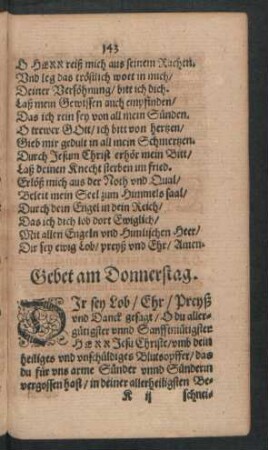 143
O HERR reiß mich aus seinem Rachen.
Vnd leg das tröstlich wort in mich/
Deiner Versöhnung/ bitt ich dich.
Laß mein Gewissen auch empfinden/
Das ich rein sey von all mein Sünden.
O trewer GOtt/ ich bitt von hertzen/
Gieb mir gedult in all mein Schmertzen.
Durch Jesum Christ erhör mein Bitt/
Laß deinen Knecht sterben im fried.
Erlöß mich aus der Noth vnd Qual/
Beleit mein Seel zum Himmels saal/
Durch dein Engel in dein Reich/
Das ich dich lob dort Ewiglich/
Mit allen Engeln vnd Himlischen Heer/
Dir sey ewig Lob/ preyß vnd Ehr/ Amen.
Gebet am Donnerstag.
DIr sey Lob/ Ehr/ Preyß
vnd Danck gesagt/ O du aller-
gütigster vnnd Sanfftmütigster
HERR Jesu Christe/ vmb dein
heiliges vnd vnschüldiges Blutsopffer/ das
du für vns arme Sünder vnnd Sünderin
vergossen hast/ in deiner allerheiligsten Be-
K ij schnei-